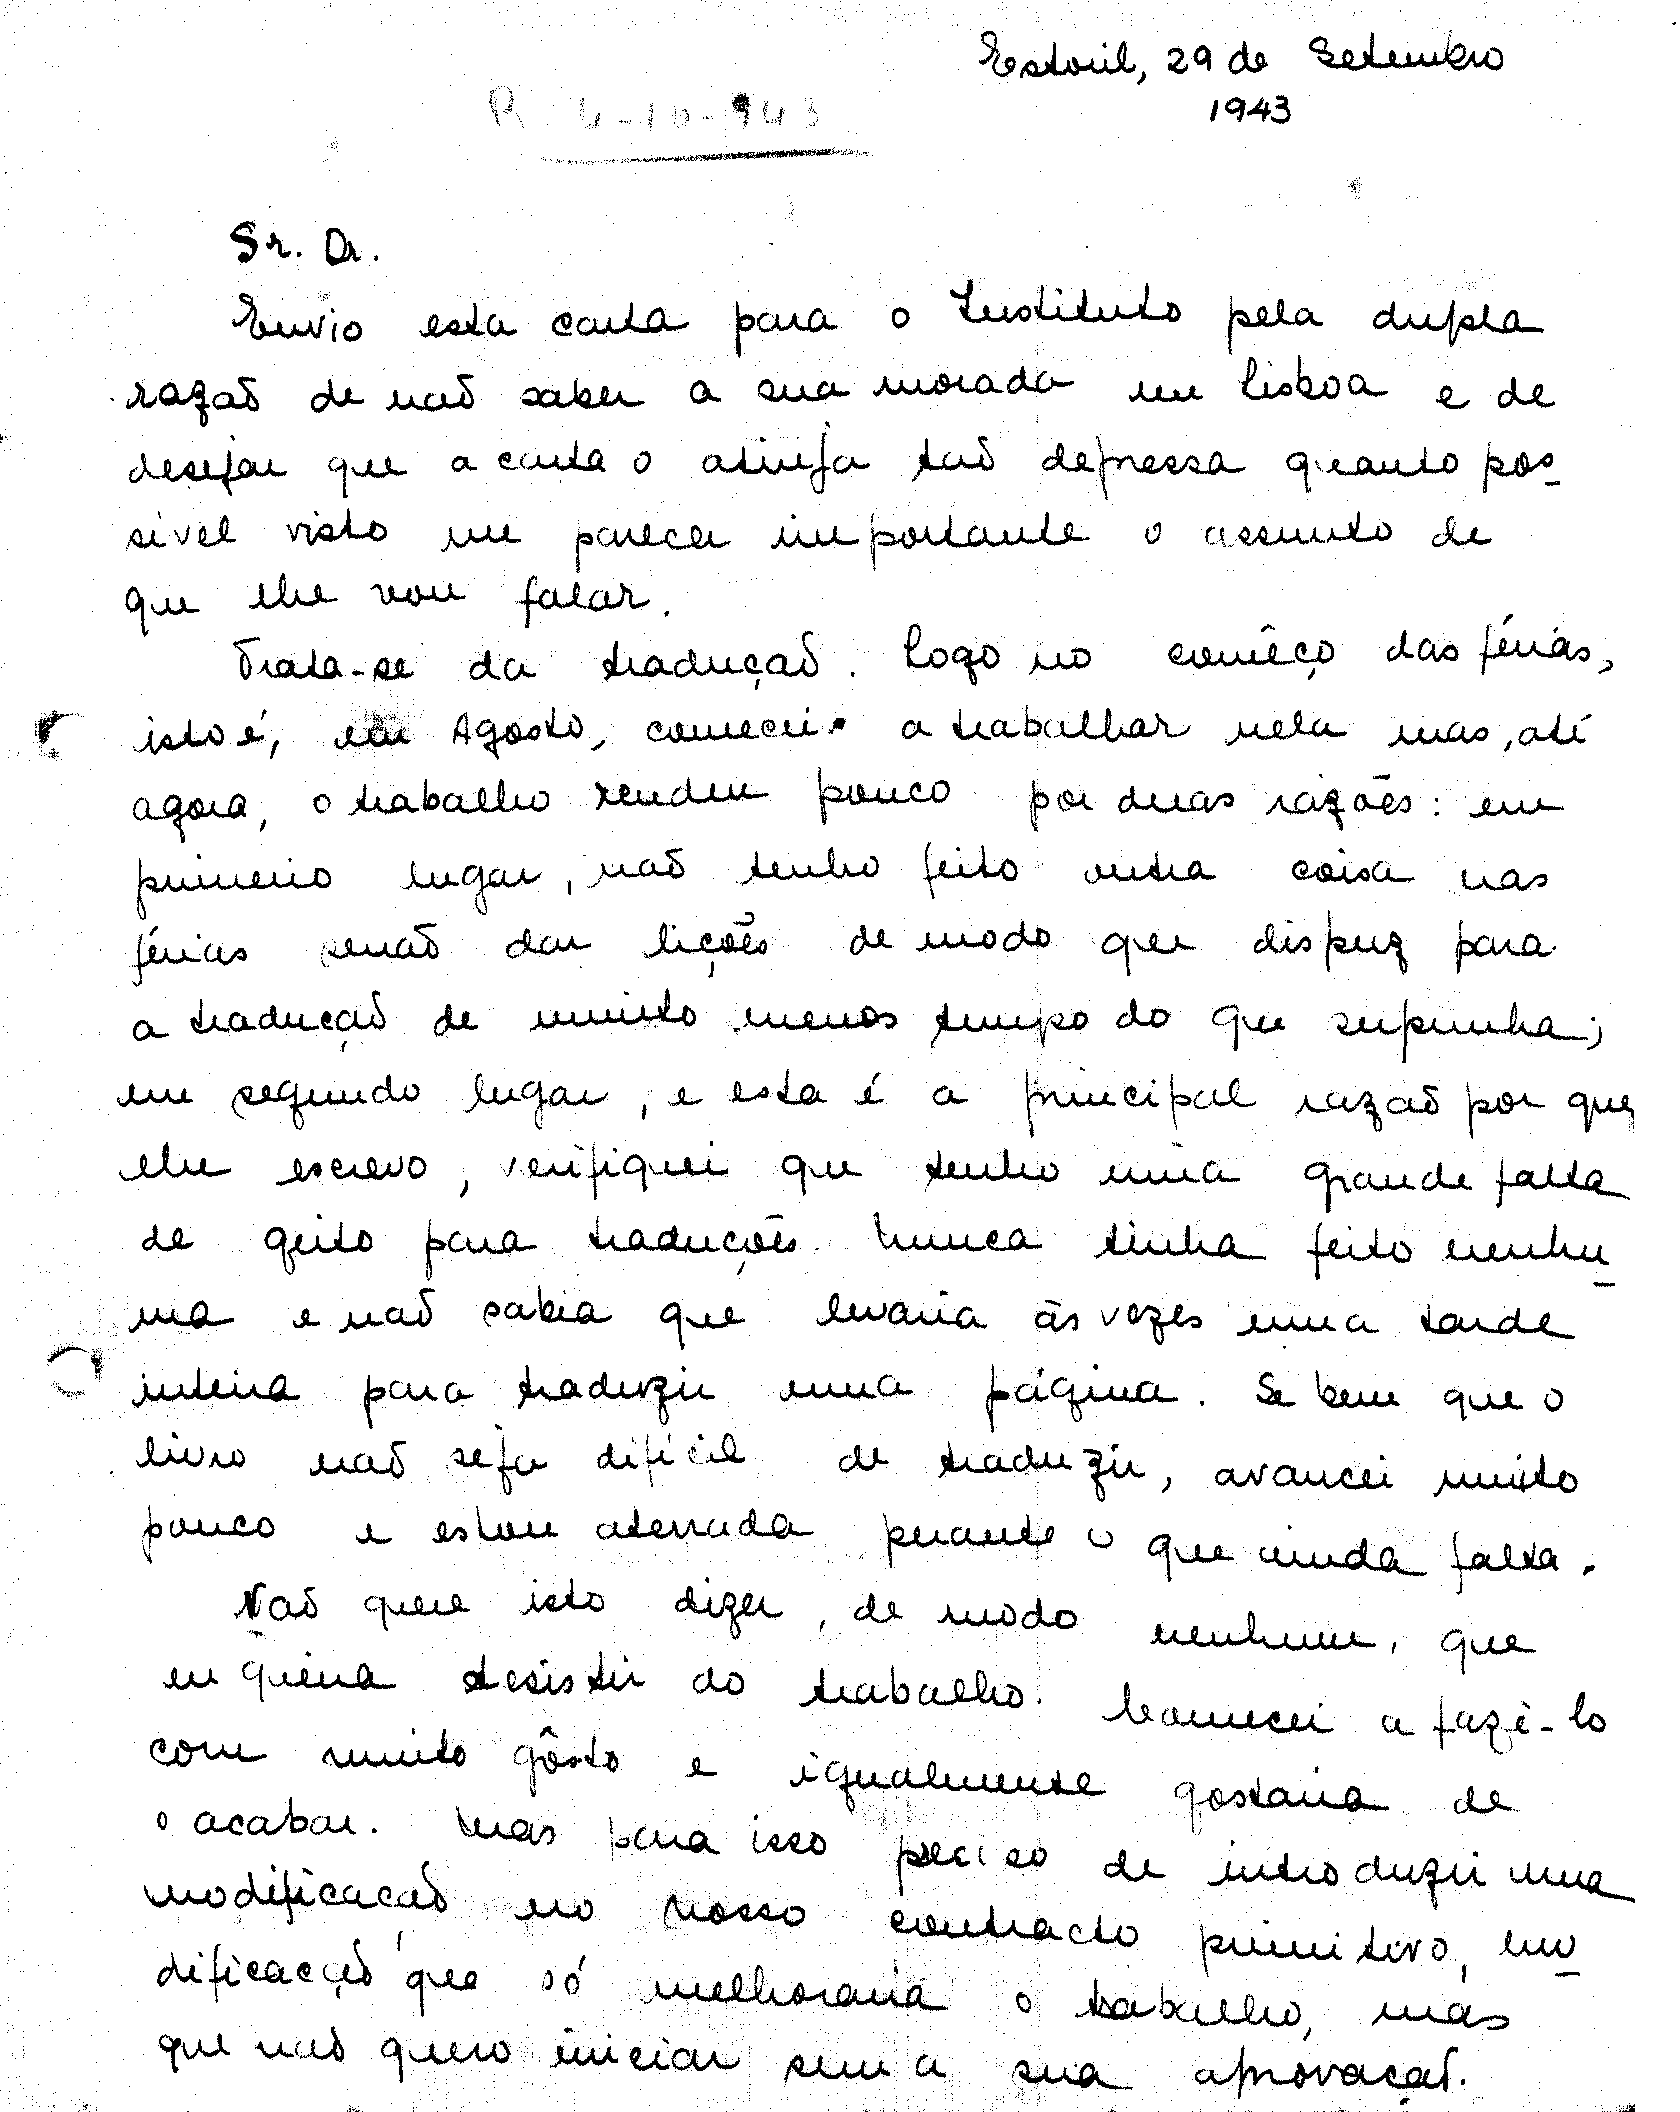 Estoril, 29 de Setembro
1943
R 4-10-943
Sr. Dr.
Envio esta carta para o Instituto pela dupla
razaõ de naõ saber a sua morada em Lisboa e de
desejar que a carta o atinja taõ depressa quanto pos-
sível visto me parecer importante o assunto de
que lhe vou falar.
Trata-se da traduçaõ. Logo no comêço das férias,
isto é, em Agosto, comecei a trabalhar nela mas, até
agora, o trabalho rendeu pouco por duas razões: em
primeiro lugar, naõ tenho feito outra coisa nas
férias senaõ dar lições de modo que dispuz para
a traduçaõ de muito menos tempo do que supunha;
em segundo lugar, e esta é a principal razaõ por que
lhe escrevo, verifiquei que tenho uma grande falta
de geito para traduções. Nunca tinha feito nenhu-
ma e naõ sabia que levaria às vezes uma tarde
inteira para traduzir uma página. Se bem que o
livro naõ seja difícil de traduzir, avancei muito
pouco e estou aterrada perante o que ainda falta.
Naõ quere isto dizer, de modo nenhum, que
eu queira desistir do trabalho. Comecei a fazê-lo
com muito gôsto e igualmente gostaria de
o acabar. Mas para isso preciso de introduzir uma
modificaçaõ no nosso contracto primitivo, mo-
dificaçaõ que só melhoraria o trabalho, mas
que naõ quero iniciar sem a sua aprovaçaõ.